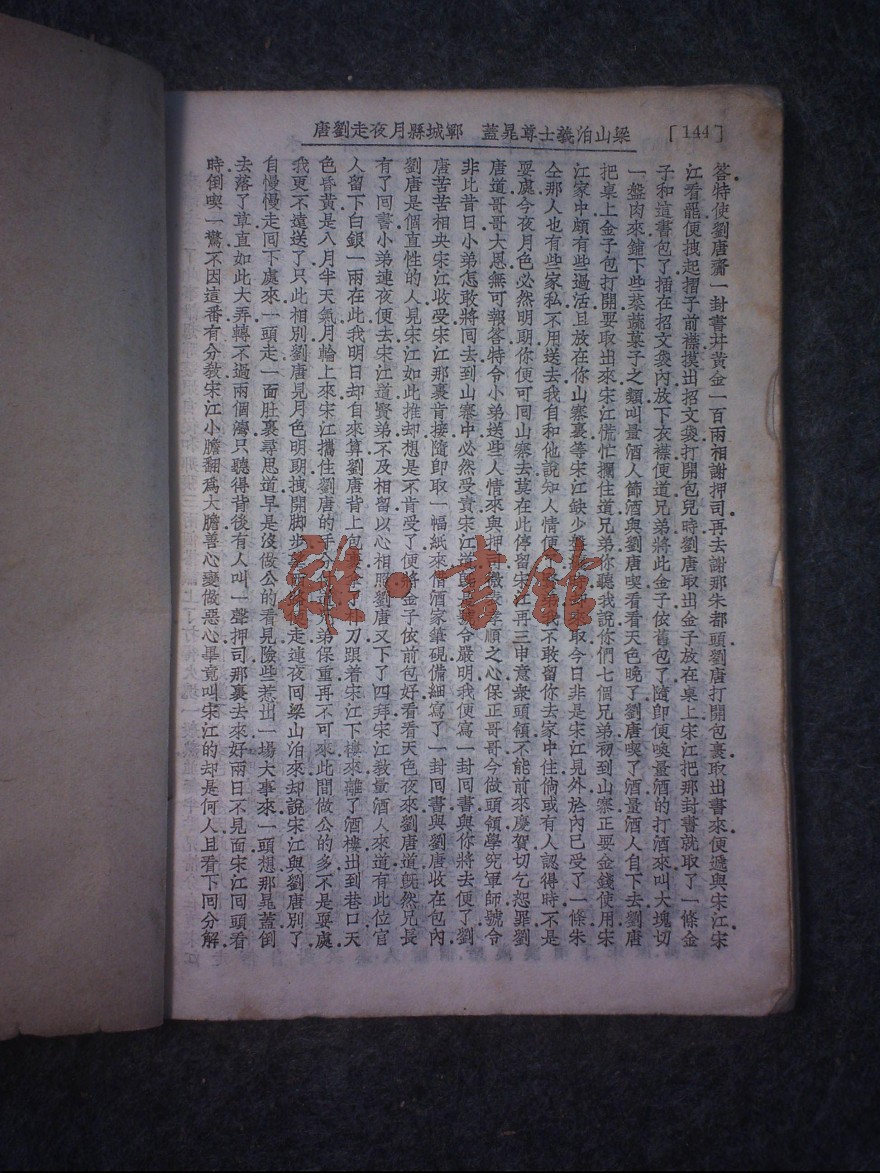 [144]
梁山泊義士尊晁蓋　鄆城縣月夜走劉唐
答特使劉唐齎一封書并黃金一百兩相謝押司再去謝那朱都頭劉唐打開包裹取出書來便遞與宋江宋
江看罷便拽起摺子前襟摸出招文袋打開包兒時劉唐取出金子放在桌上宋江把那封書就取了一條金
子和這書包了插在招文袋內放下衣襟便道兄弟將此金子依舊包了隨即便喚量酒的打酒來叫大塊切
一盤肉來鋪下些菜蔬菓子之類叫量酒人篩酒與劉唐喫看看天色晚了劉唐喫了酒量酒人自下去劉唐
把桌上金子包打開要取出來宋江慌忙攔住道兄弟你聽我說你們七個兄弟初到山寨正要金錢使用宋
江家中頗有些過活且放在你山寨裏等宋江缺少 取今日非是宋江見外於內已受了一條朱
仝那人也有些家私不用送去我自和他說知人情便 我不敢留你去家中住倘或有人認得時不是
耍處今夜月色必然明朗你便可回山寨去莫在此停留宋江再三申意衆頭領不能前來慶賀切乞恕罪劉
唐道哥哥大恩無可報答特令小弟送些人情來與押 孝順之心保正哥哥今做頭領學究軍師號令
非比昔日小弟怎敢將回去到山寨中必然受責宋江道 號令嚴明我便寫一封回書與你將去便了劉
唐苦苦相央宋江收受宋江那裏肯接隨即取一幅紙來借酒家筆硯備細寫了一封回書與劉唐收在包內
劉唐是個直性的人見宋江如此推却想是不肯受了便將金子依前包好看看天色夜來劉唐道旣然兄長
有了回書小弟連夜便去宋江道賢弟不及相留以心相照劉唐又下了四拜宋江教量酒人來道有此位官
人留下白銀一兩在此我明日却自來算劉唐背上包 朴刀跟着宋江下樓來離了酒樓出到巷口天
色昏黃是八月半天氣月輪上來宋江攜住劉唐的手分 弟保重再不可來此間做公的多不是耍處
我更不遠送了只此相別劉唐見月色明朗拽開脚步 走連夜回梁山泊來却說宋江與劉唐別了
自慢慢走回下處來一頭走一面肚裏尋思道早是沒做公的看見險些惹出一場大事來一頭想那晁蓋倒
去落了草直如此大弄轉不過兩個灣只聽得背後有人叫一聲押司那裏去來好兩日不見面宋江回頭看
時倒喫一驚不因這番有分敎宋江小膽翻爲大膽善心變做惡心畢竟叫宋江的却是何人且看下回分解
雜·書館